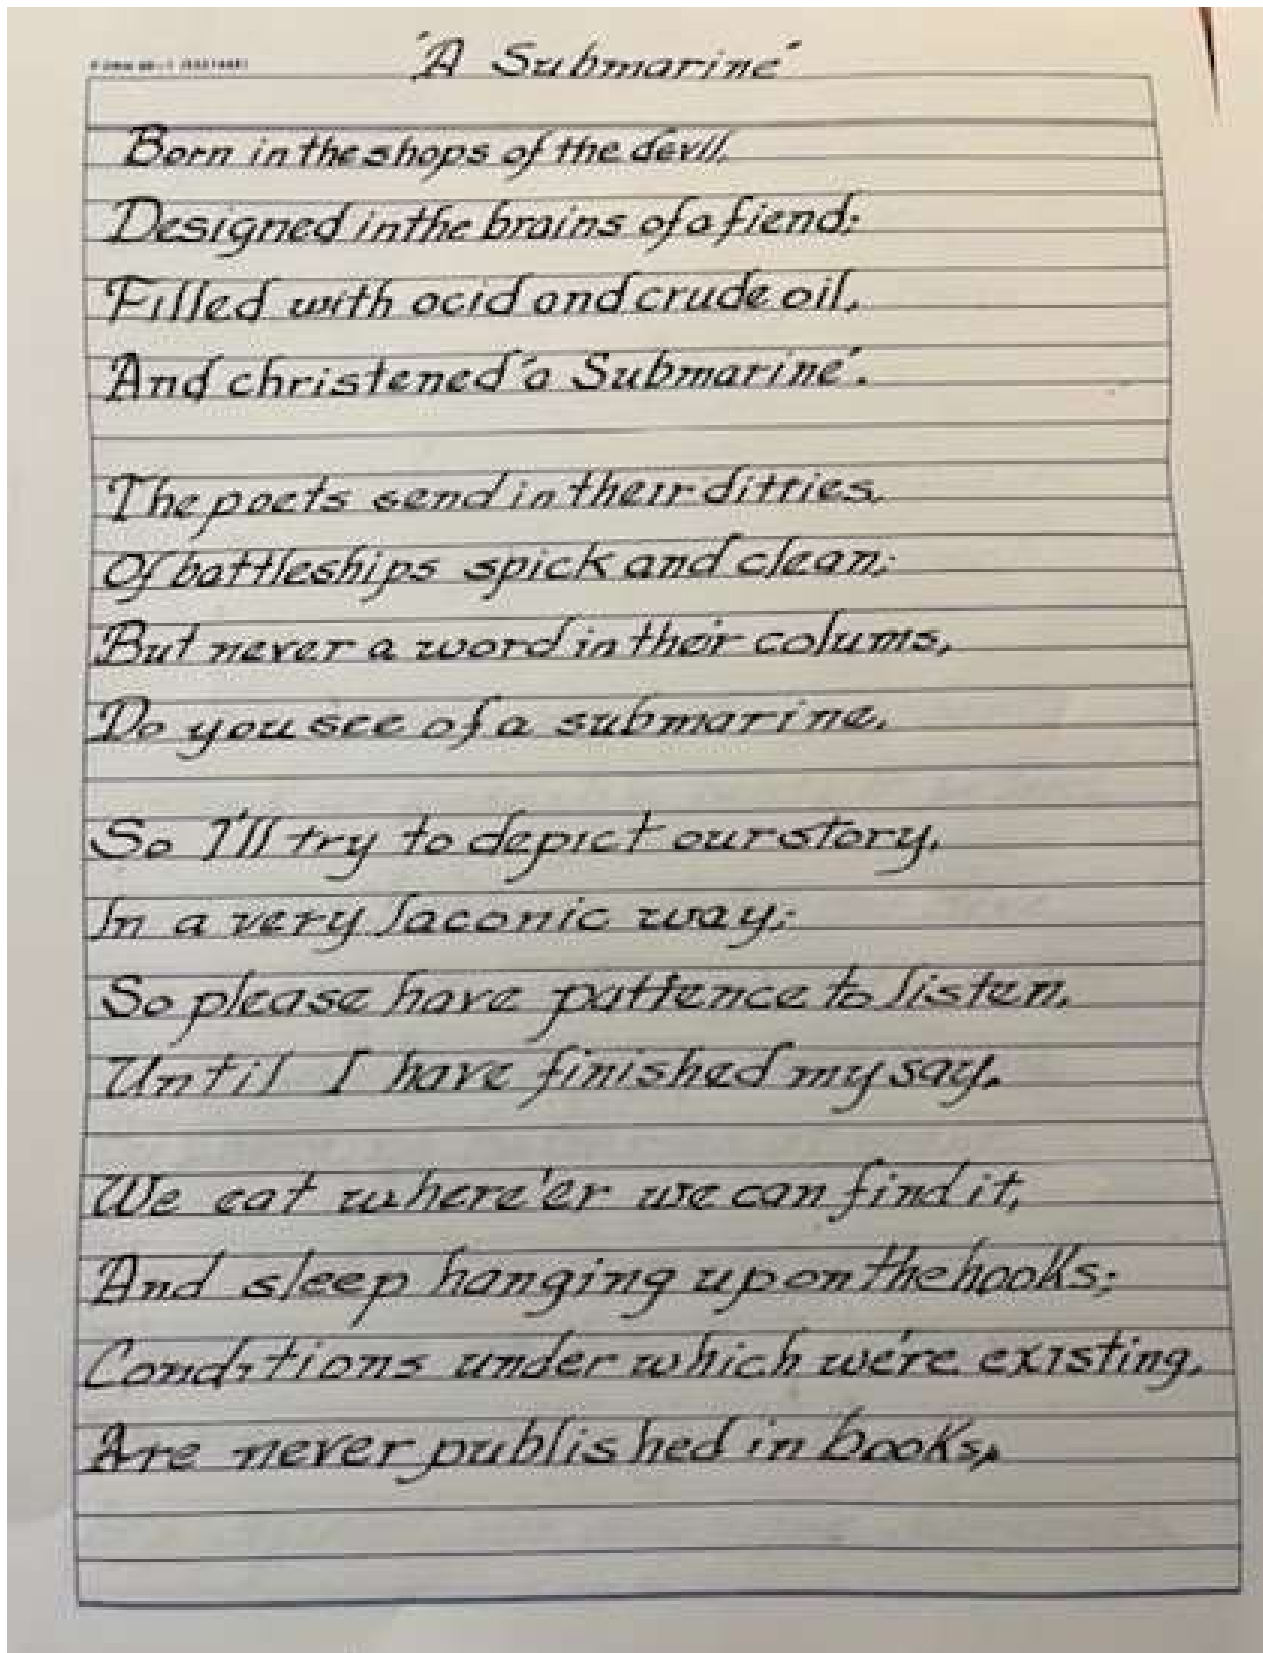 'A Submarine'
Born in the shops of the devil,
Designed in the brains of a fiend;
Filled with acid and crude oil,
And christened 'a Submarine'.
The poets send in their ditties,
Of battleships spick and clean;
But never a word in their colums,
Do you see of a submarine.
So I'll try to depict our story,
In a very laconic way;
So please have pattence to listen,
Until I have finished my say.
We eat where'er we can find it,
And sleep hanging up on the hooks;
Conditions under which we're existing,
Are never published in books,